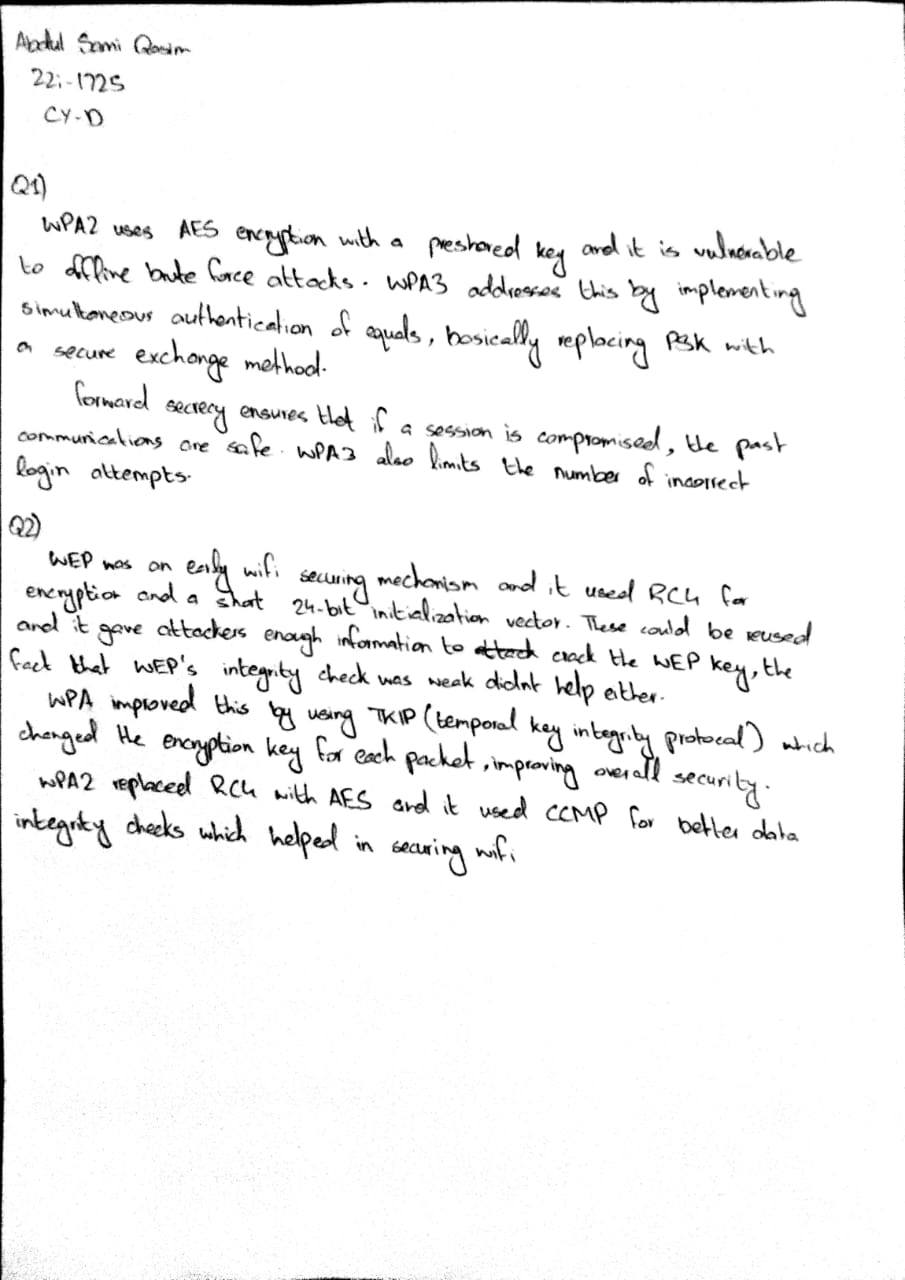 Abdul Sami Qasim
22i-1725
CY-D
Q1)
WPA2 uses AES encryption with a preshared key and it is vulnerable
to offline brute force attacks. WPA3 addresses this by implementing
simultaneous authentication of equals, basically replacing PSK with
a secure exchange method.
forward secrecy ensures that if a session is compromised, the past
communications are safe. WPA3 also limits the number of incorrect
login attempts.
Q2)
WEP was an early wifi securing mechanism and it used RC4 for
encryption and a short 24-bit initialization vector. These could be reused
and it gave attackers enough information to attack crack the WEP key, the
fact that WEP's integrity check was weak didnt help either.
WPA improved this by using TKIP (temporal key integrity protocol) which
changed the encryption key for each packet, improving overall security.
WPA2 replaced RC4 with AES and it used CCMP for better data
integrity checks which helped in securing wifi